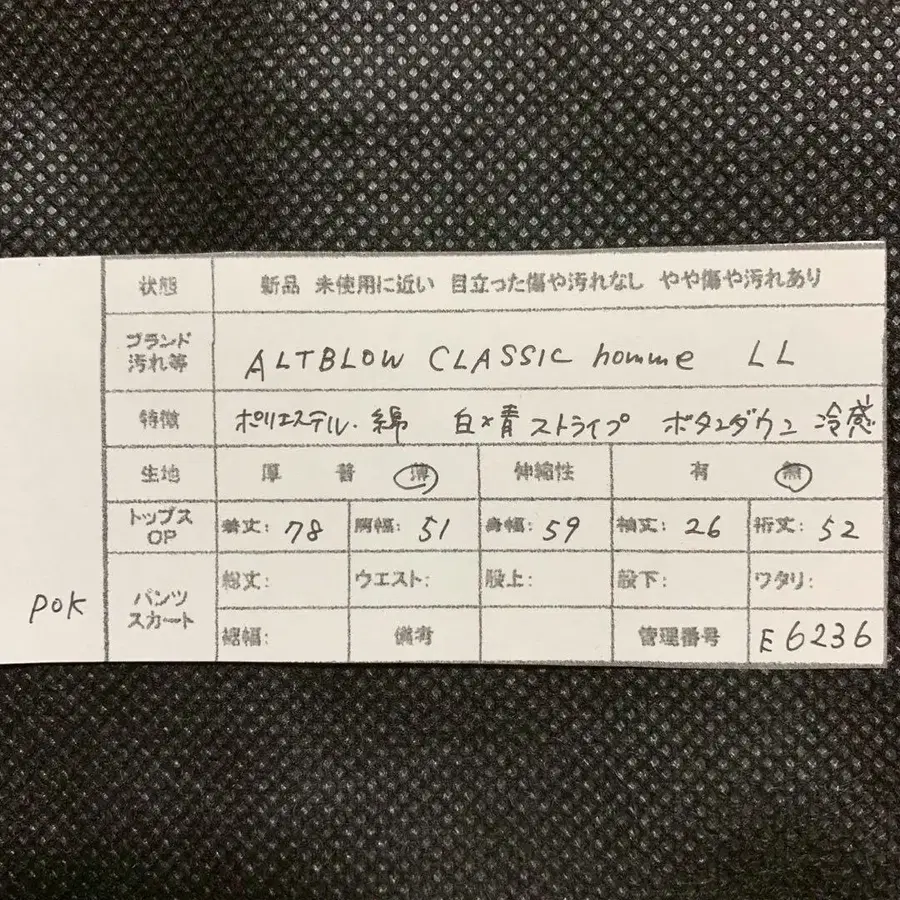 状態 新品 未使用に近い 目立った傷や汚れなし やや傷や汚れあり
ブランド
汚れ等 ALTBLOW CLASSIC homme LL
特徴 ポリエステル・綿 白×青ストライプ ボタンダウン 冷感
生地 厚 普 薄 伸縮性 有 無
トップス
OP 着丈: 78 肩幅: 51 身幅: 59 袖丈: 26 裄丈: 52
パンツ
スカート 総丈: ウエスト: 股上: 股下: ワタリ:
裾幅: 備考 管理番号 E6236
POK